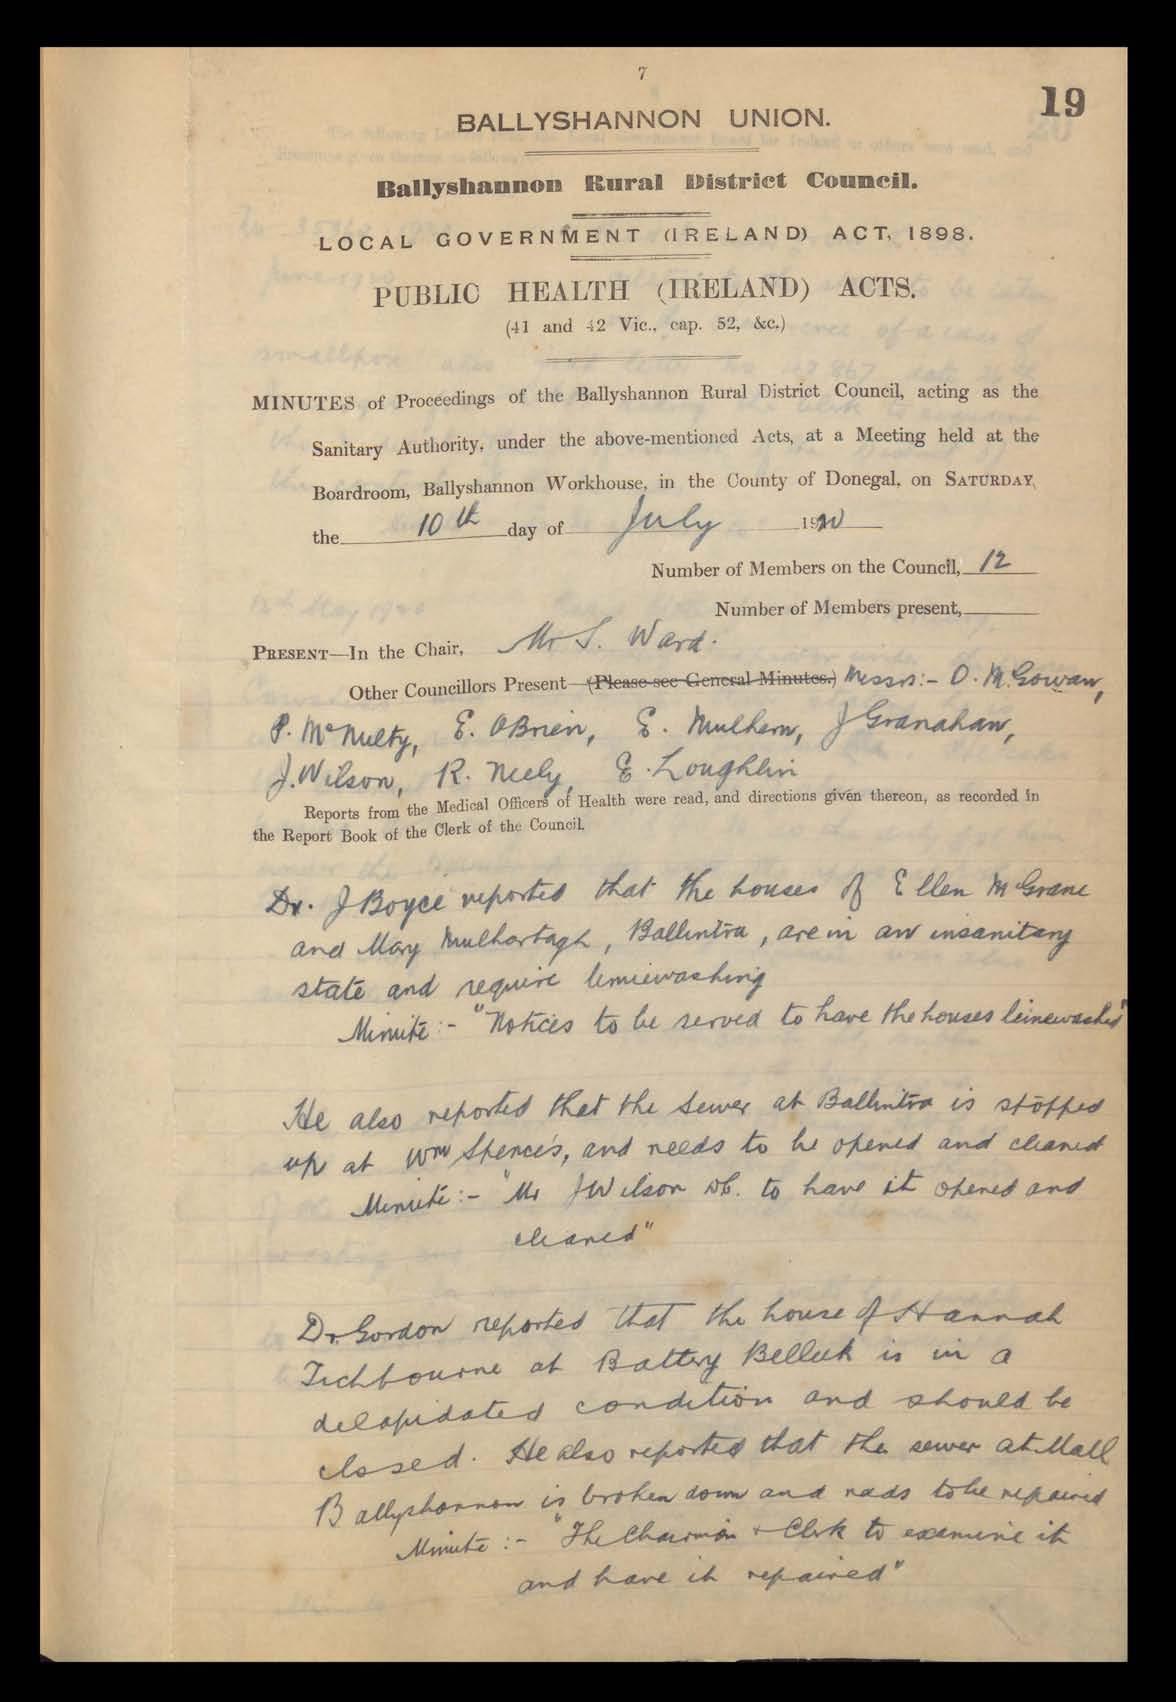 7
19
BALLYSHANNON UNION.
Ballyshannon Rural District Council.
LOCAL GOVERNMENT (IRELAND) ACT, 1898.
PUBLIC HEALTH (IRELAND) ACTS.
(41 and 42 Vic., cap. 52, &c.)
MINUTES of Proceedings of the Ballyshannon Rural District Council, acting as the
Sanitary Authority, under the above-mentioned Acts, at a Meeting held at the
Boardroom, Ballyshannon Workhouse, in the County of Donegal, on SATURDAY,
the 10th day of July 1920
Number of Members on the Council, 12
Number of Members present,
PRESENT—In the Chair, Mr S. Ward.
Other Councillors Present—(Please see General Minutes.) Messrs:- O. McGowan,
P. McNulty, E. OBrien, E. Mulhern, J Granahan,
J. Wilson, R. Neely, E. Loughlin
Reports from the Medical Officers of Health were read, and directions given thereon, as recorded in
the Report Book of the Clerk of the Council.
Dr. J Boyce reported that the houses of Ellen McGrane
and Mary Mulhartagh, Ballintra, are in an insanitary
state and require limewashing
Minute :- "Notices to be served to have the houses limewashed"
He also reported that the sewer at Ballintra is stopped
up at Wm Spence's, and needs to be opened and cleaned
Minute :- "Mr J Wilson DC. to have it opened and
cleaned"
Dr. Gordon reported that the house of Hannah
Tichbourne at Battery Belleek is in a
delapidated condition and should be
closed. He also reported that the sewer at Mall
Ballyshannon is broken down and needs to be repaired
Minute :- "The Chairman & Clerk to examine it
and have it repaired"